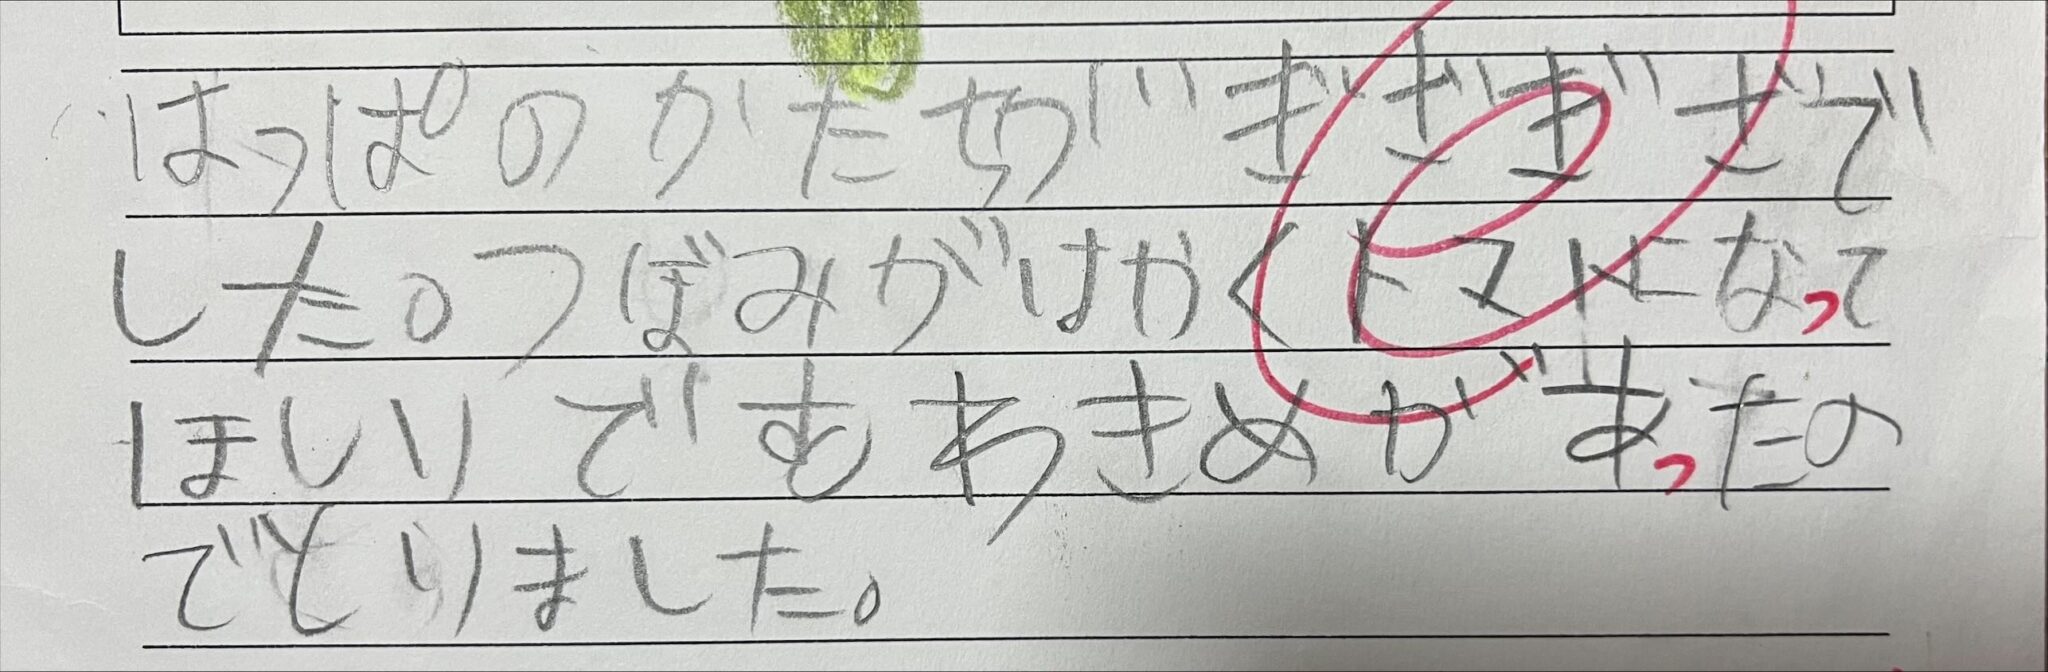 はっぱのかたちがぎざぎざで
した。つぼみがはかくトマトになって
ほしいでもわきめがあったの
でとりました。